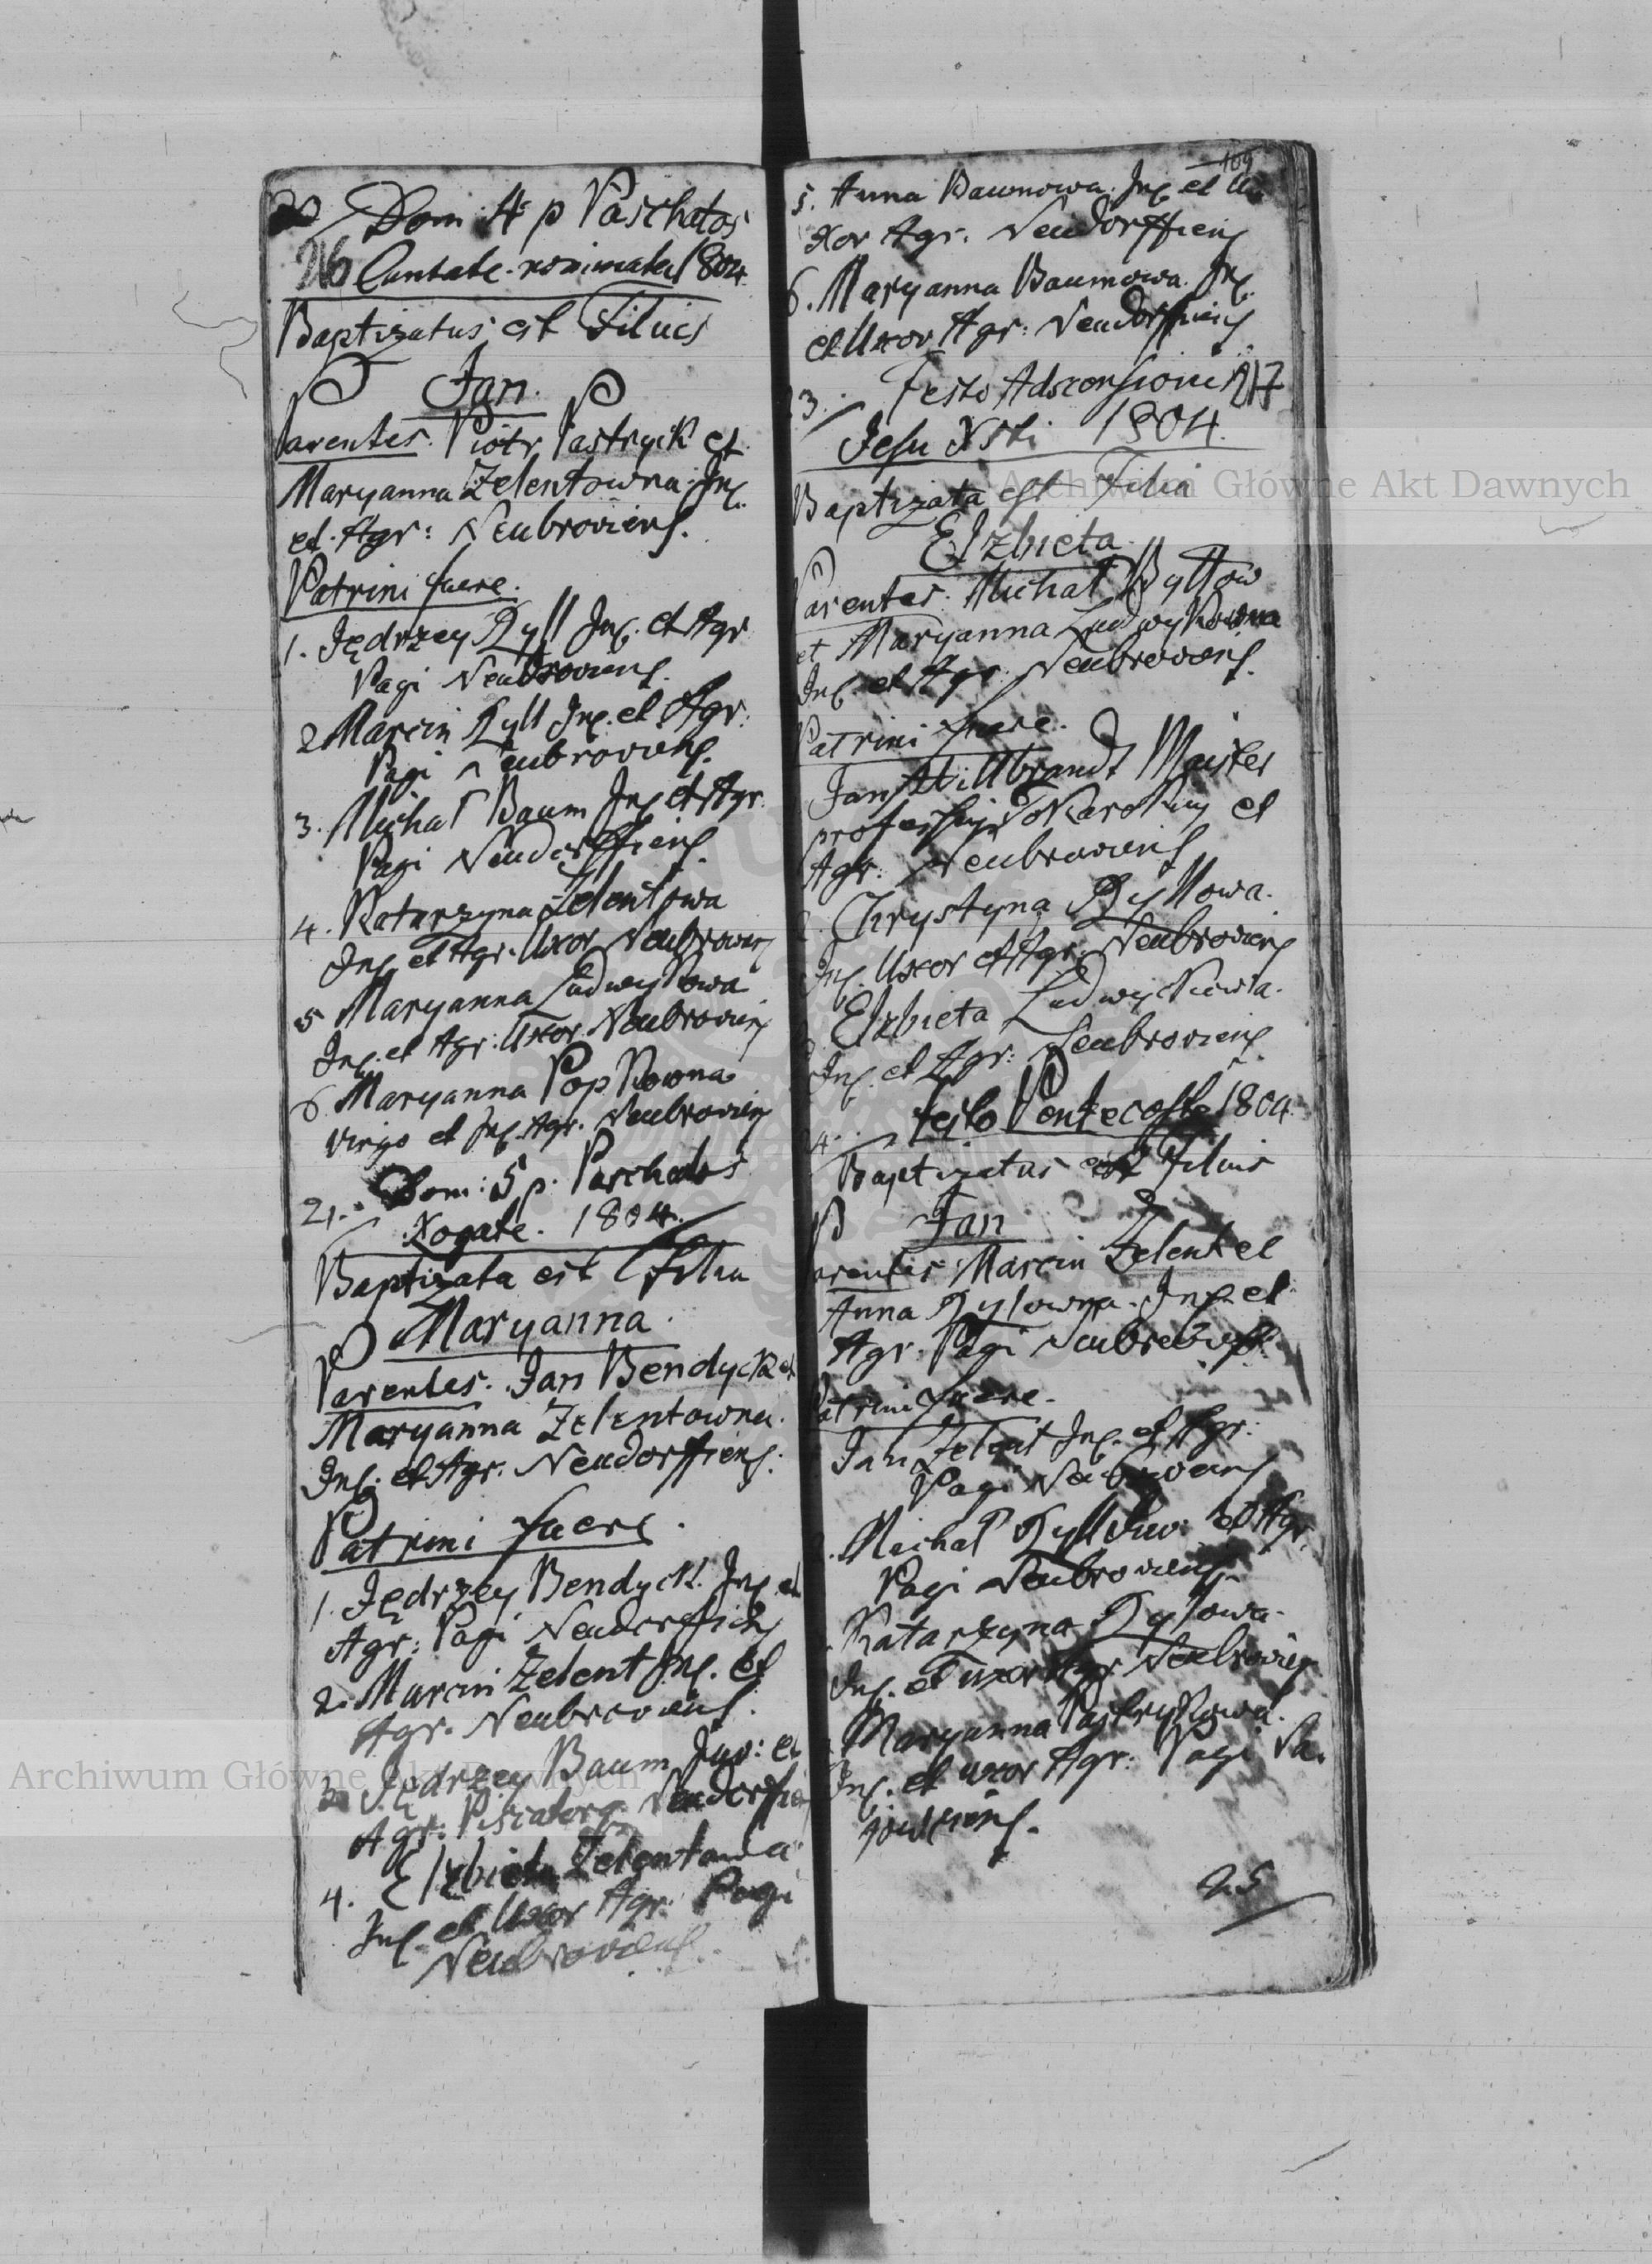 20 Dom: 4 p Paschatos
216 Cantate nominata 1804.
Baptizatus est Filius
Jan.
Parentes. Piotr Pastryck et
Maryanna Zelentowna: Inq.
et. Agr: Neubroviens.
Patrini fuere.
1. Jędrzey Ryll Inq. et Agr
Pagi Neubroviens.
2 Marcin Ryll Inq. et Agr:
Pagi Neubroviens.
3. Michał Baum Inq et Agr.
Pagi Neudorffiens.
4. Katarzyna Zelentowa
Inq et Agr. Uxor Neubroviens
5 Maryanna Ludwykowa
Inq. et Agr: Uxor. Neubroviens
6 Maryanna Popkowna
Virgo et Inq. Agr. Neubroviens
21. Dom: 5 p. Paschatos
Rogate. 1804.
Baptizata est Filia
Maryanna.
Parentes. Jan Bendyck et
Maryanna Zelentowna.
Inq. et Agr. Neudorffiens.
Patrini fuere.
1. Jędrzey Bendyck. Inq et
Agr: Pagi Neudorffiens
2. Marcin Zelent Inq. et
Agr. Neubroviens.
3 Jędrzey Baum Juv: et
Agr: Neudorffie
4. Elzbieta Zelentowa
Inq. et Uxor Agr: Pagi
Neubroviens.
109
5. Anna Baumowa. Inq et U
xor Agr. Neudorffiens
6. Maryanna Baumowa. Inq.
et Uxor Agr: Neudorffiens
3. Festo Adscensionis 217
Jesu Xsti 1804.
Baptizata est Filia
Elzbieta.
Parentes. Michał Byttow
et Maryanna Ludwykowna
Inq. et Agr Neubroviens.
Patrini fuere.
Jan Hillbrandt Maister
Tokarskiey et
Agr: Neubroviens
Chrystyna Ryllowa.
Inq. Uxor et Agr. Neubroviens
Elzbieta
Inq. et Agr: Neubroviens
4. Festo Pentecoste 1804.
Baptizatus est Filius
Jan
Parentes Marcin Zelent et
Anna Rylowna. Inq. et
Agr. Pagi
Patrini fuere.
Jan Zelent Inq. et Agr:
Pagi Neubroviens
Michał Ryll Juv: et Agr.
Pagi Neubroviens.
Katarzyna Rylowa.
Inq. et Uxor Agr Neubroviens
Maryanna Pastrykowa.
Inq. et uxor Agr: Pagi
25
Archiwum Główne Akt Dawnych
Archiwum Główne Akt Dawnych